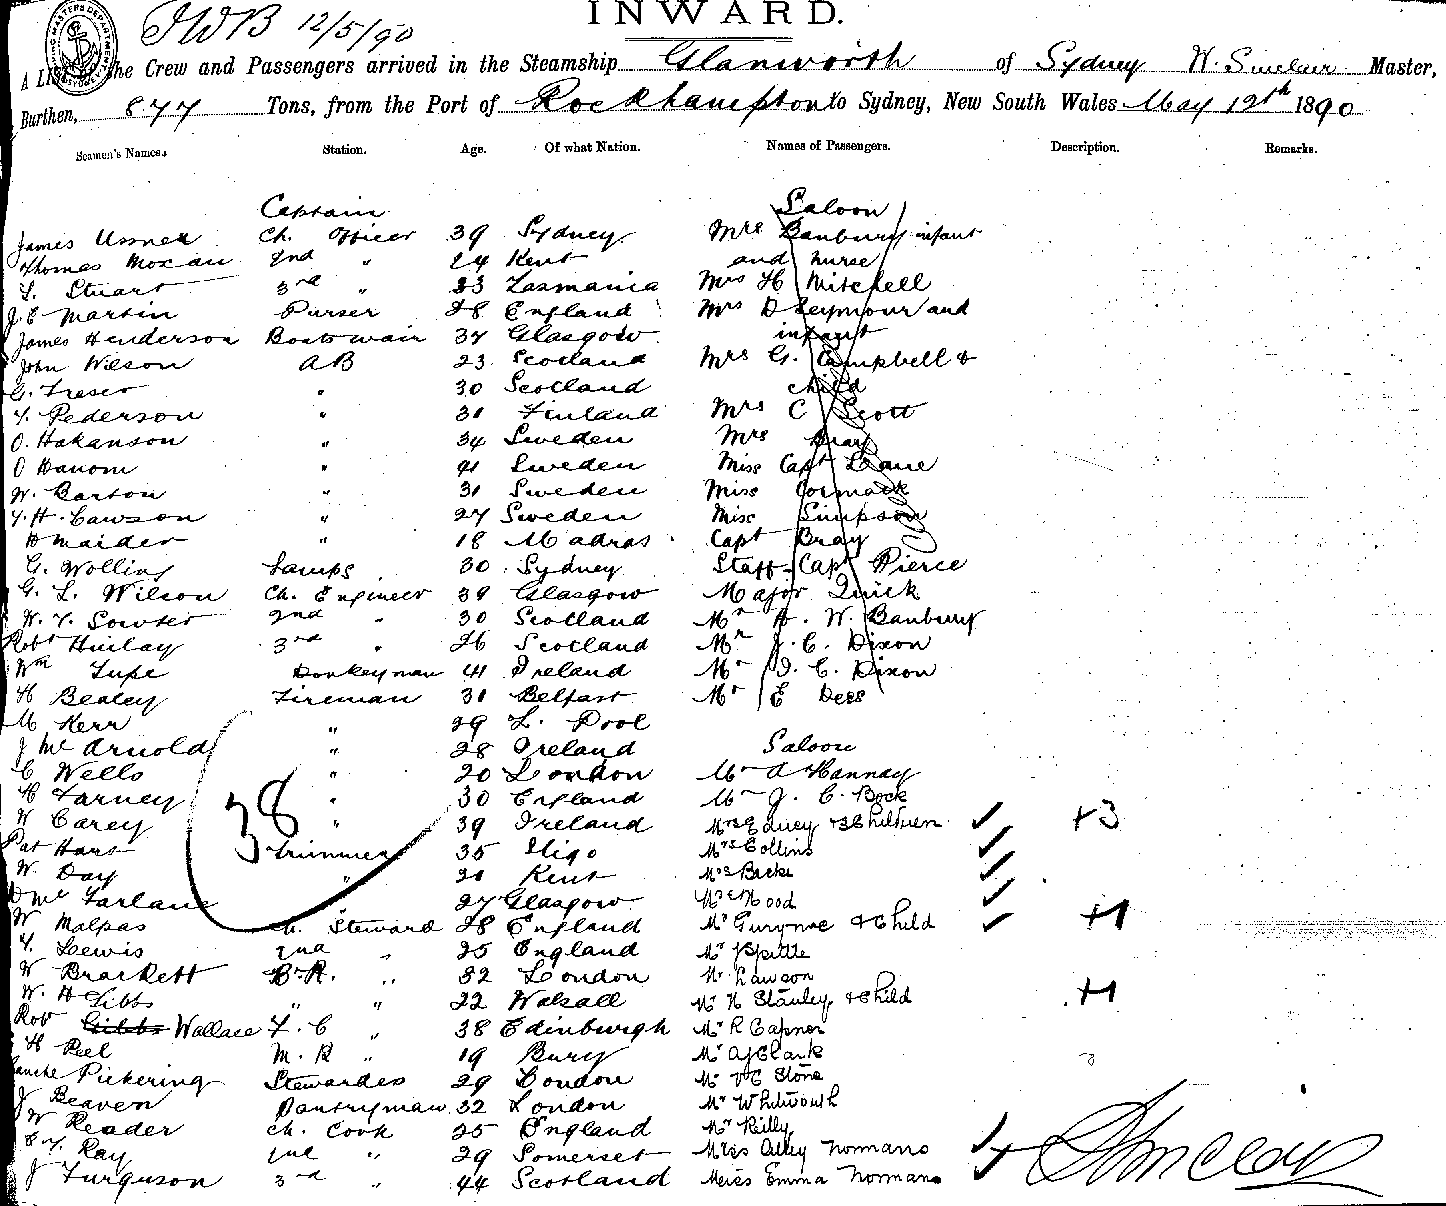 INWARD.
JWB 12/5/90
A List of the Crew and Passengers arrived in the Steamship Glanworth of Sydney W. Sinclair Master,
Burthen, 877 Tons, from the Port of Rockhampton to Sydney, New South Wales May 12th 1890
Seamen's Names. Station. Age. Of what Nation. Names of Passengers. Description. Remarks.
Captain Saloon
James Ch. Officer 39 Sydney Mrs Banbury infant
Thomas Moran 2nd " 24 Kent and nurse
Stuart 3rd " 33 Tasmania Mrs H Mitchell
J. E Martin Purser 28 England Mrs D Seymour and
James Henderson Boatswain 37 Glasgow infant
John Wilson AB 23 Scotland Mrs G. Campbell &
G. Freser " 30 Scotland child
Pederson " 31 Finland Mrs C Scott
O. Hakanson " 34 Sweden Mrs Bray
O Hanom " 41 Sweden Miss Capt Lane
W. Barton " 31 Sweden Miss Cormack
H. Lawson " 27 Sweden Miss Simpson
Maider " 18 Madras Capt Bray
G. Wollins Lamps 30 Sydney Staff-Capt Pierce
G. L. Wilson Ch. Engineer 39 Glasgow Major Quick
W. Sowter 2nd " 30 Scotland Mr H. W. Banbury
Robt Hinlay 3rd " 26 Scotland Mr J. C. Dixon
Wm Tupe Donkeyman 41 Ireland Mr I. C. Dixon
H Bealey Fireman 31 Belfast Mr E Dees
M Kerr " 29 L. Pool
J Mc Arnold " 28 Ireland Saloon
C Wells " 20 London Mr A Hannay
H Tarney " 30 England Mr J. C. Bock
W Carey " 39 Ireland Mrs Edney & 3 Children +3
38
Pat Hart Trimmer 35 Sligo Mrs Collins
W. Day " 21 Kent Mrs Beck
D Mc Farlane " 27 Glasgow Mrs Wood
W Malpas Ch. Steward 28 England Mr Gwynne & Child +1
Lewis 2nd " 25 England Mr Spittle
W Brackett B.R. " 32 London Mr Lawson
W. H Gibbs " " 22 Walsall Mr H Stanley & Child +1
Rob Gibbs Wallace F. C " 38 Edinburgh Mr R Capner
H Peel M. R " 19 Bury Mr A J Clark
Pickering Stewardes 29 London Mr Stone
J Beaven Pantryman 32 London Mr Whitworth
W Reader Ch. Cook 25 England Mr Reilly
Ray 2nd " 29 Somerset Miss Alley Nomano
J Furguson 3rd " 44 Scotland Miss Emma Nomano